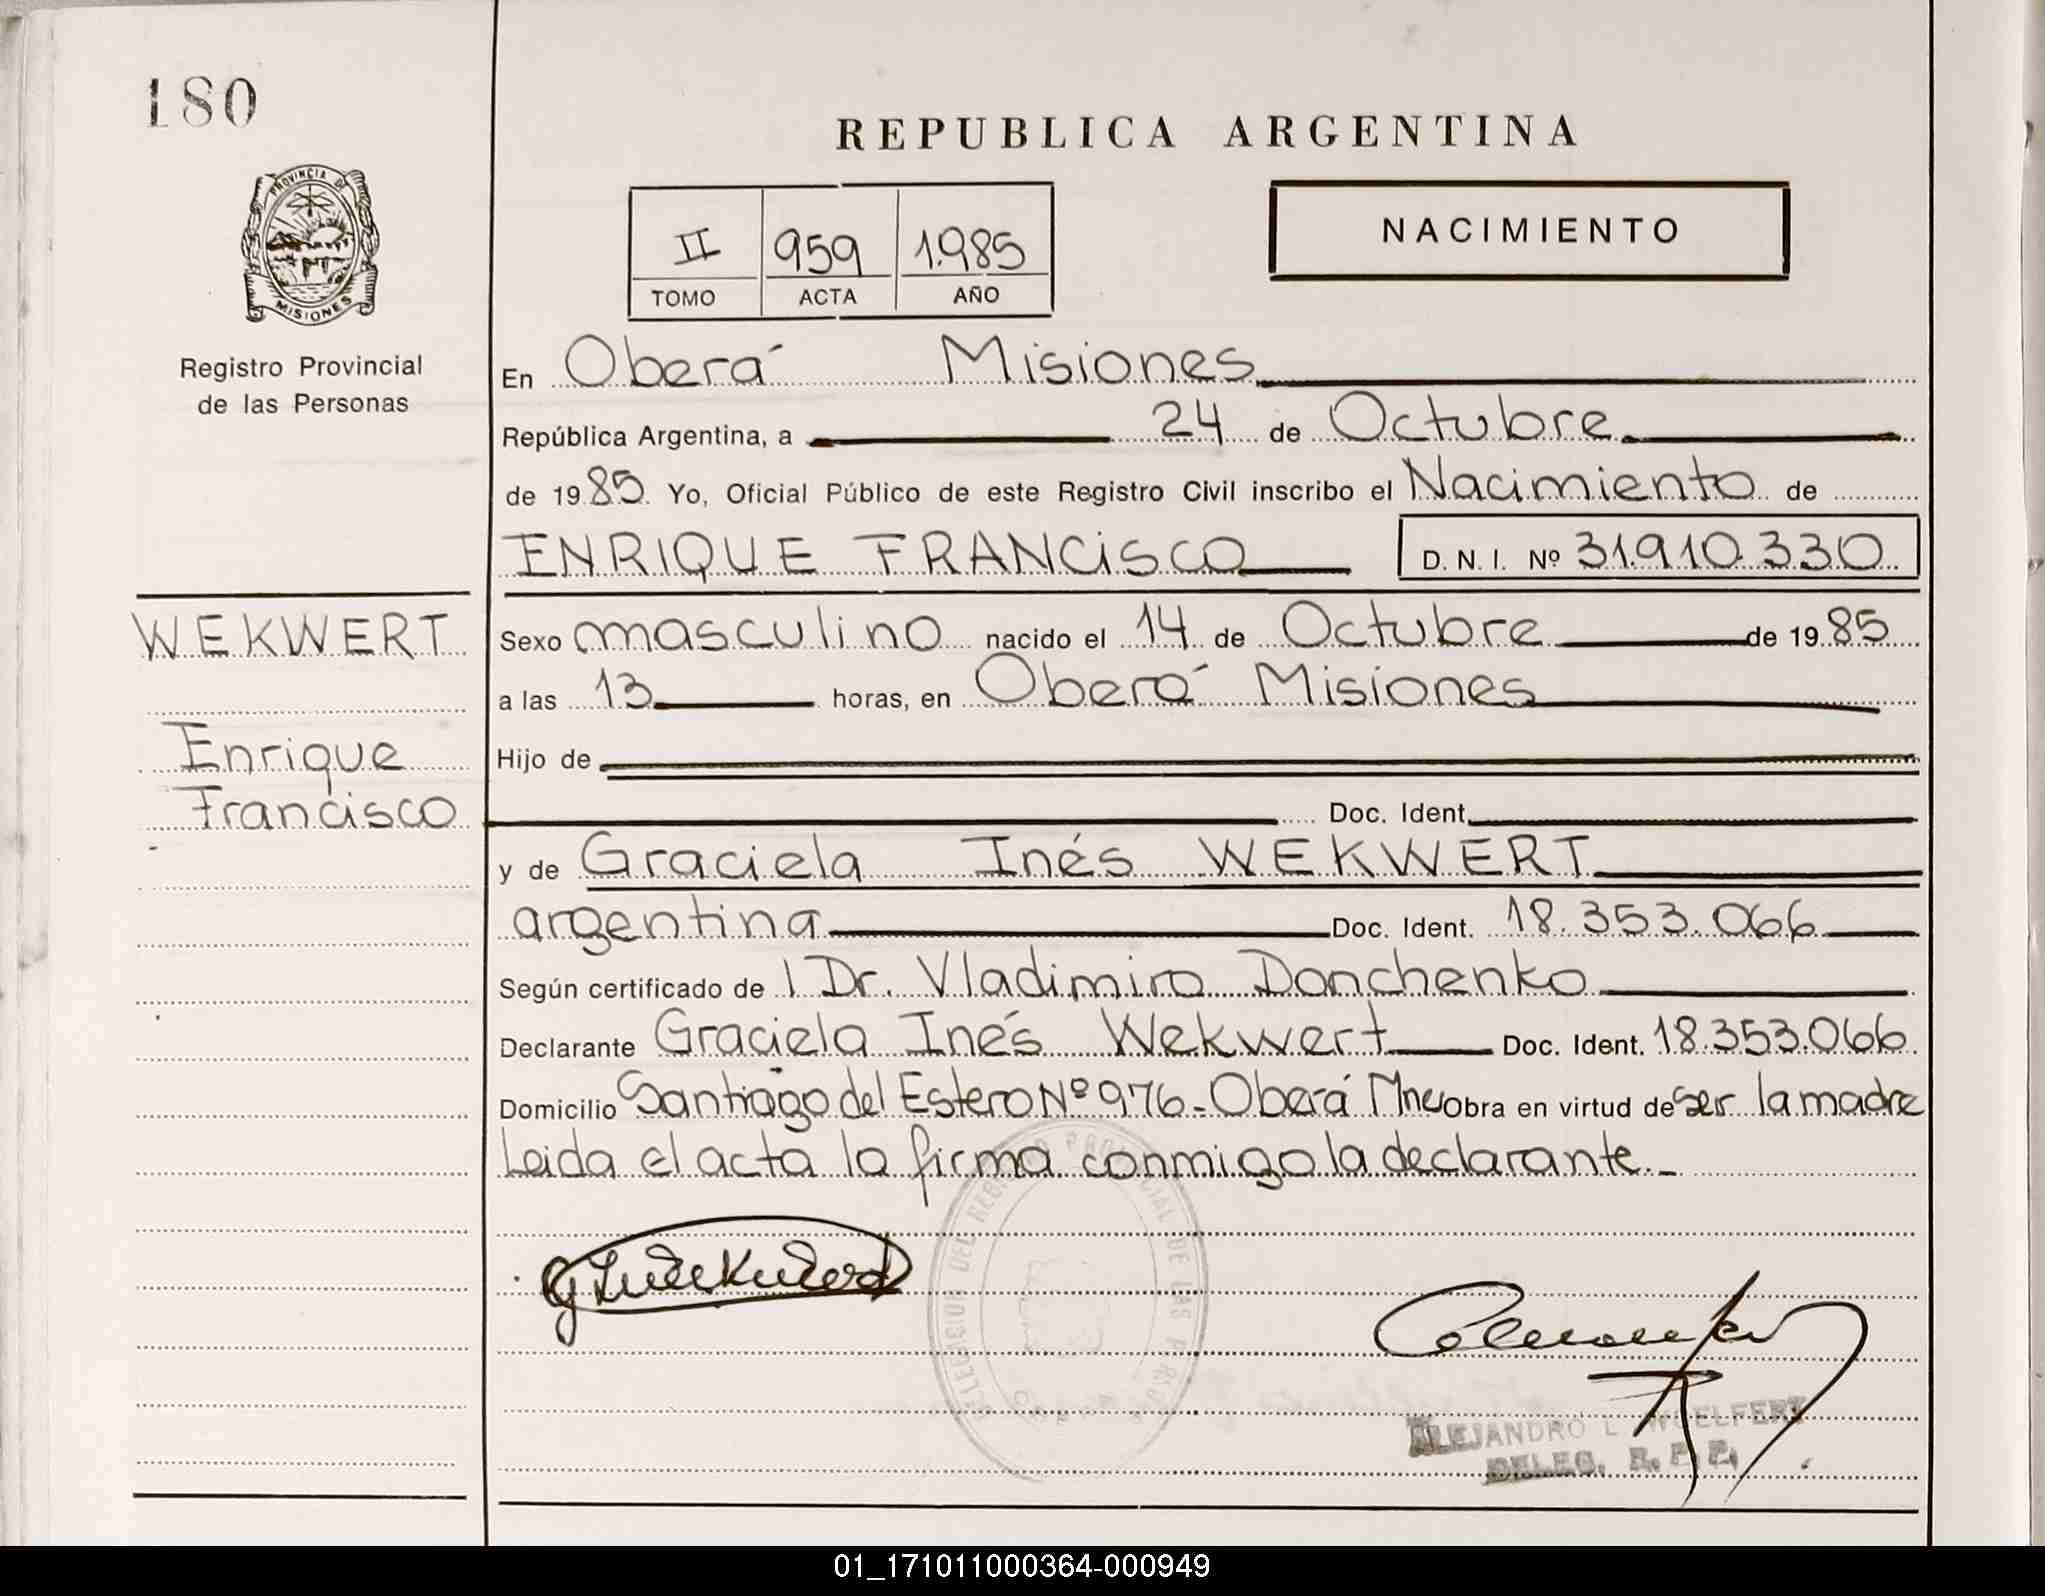 180
REPUBLICA ARGENTINA
PROVINCIA DE
MISIONES
II 959 1.985
TOMO ACTA AÑO
NACIMIENTO
Registro Provincial
de las Personas
En Oberá Misiones
República Argentina, a 24 de Octubre
de 1985 Yo, Oficial Público de este Registro Civil inscribo el Nacimiento de
ENRIQUE FRANCISCO D. N. I. Nº 31.910.330
WEKWERT
Enrique
Francisco
Sexo masculino nacido el 14 de Octubre de 1985
a las 13 horas, en Oberá Misiones
Hijo de
Doc. Ident.
y de Graciela Inés WEKWERT
argentina Doc. Ident. 18.353.066
Según certificado de l Dr. Vladimiro Donchenko
Declarante Graciela Inés Wekwert Doc. Ident. 18.353.066
Domicilio Santiago del Estero Nº 976 - Oberá Mnes Obra en virtud de ser la madre
Leida el acta la firma conmigo la declarante.-
DEL REGISTRO PROVINCIAL DE LAS
ALEJANDRO L. WOELFERT
DELEG. R. P. P.
01_171011000364-000949